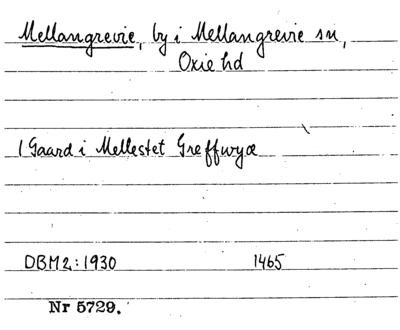 Mellangrevie, by i Mellangrevie sn,
Oxie hd
1 Gaard i Mellestet Greffwyæ
DBM2:1930 1465
Nr 5729.